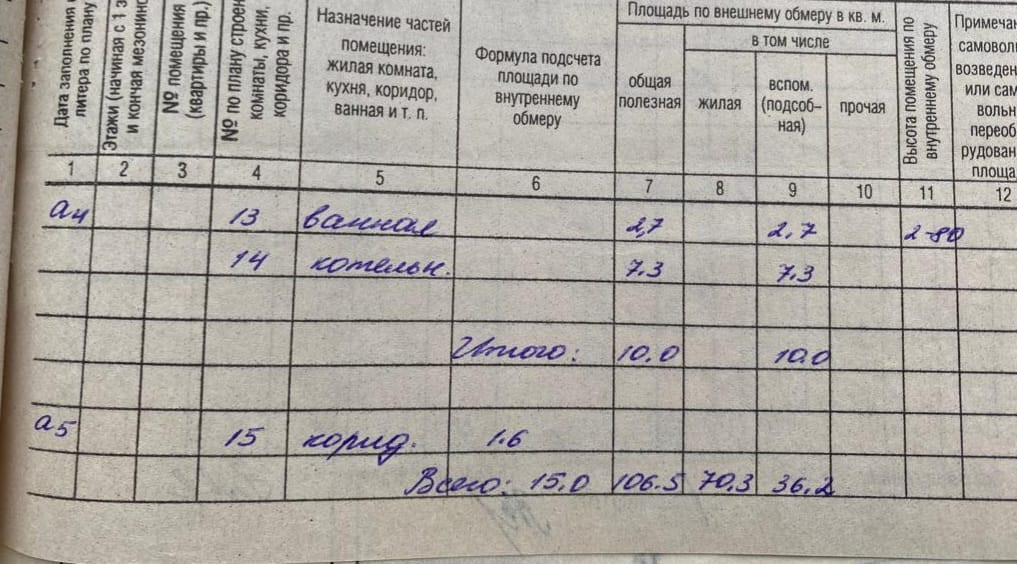 Дата заполнения
литера по плану
Этажи (начиная с 1
и кончая мезонино
№ помещения
(квартиры и пр.)
№ по плану строен
комнаты, кухни,
коридора и пр.
Назначение частей
помещения:
жилая комната,
кухня, коридор,
ванная и т. п.
Формула подсчета
площади по
внутреннему
обмеру
Площадь по внешнему обмеру в кв. м.
общая
полезная
в том числе
жилая
вспом.
(подсоб-
ная)
прочая
Высота помещения по
внутреннему обмеру
Примечан
самовол
возведен
или сам
вольн
переоб
рудован
площа
1 2 3 4 5 6 7 8 9 10 11 12
а4 13 ванная 2,7 2.7 2-80
14 котельн. 7.3 7.3
Итого: 10.0 10.0
а5 15 корид. 1.6
Всего: 15.0 106.5 70.3 36.2